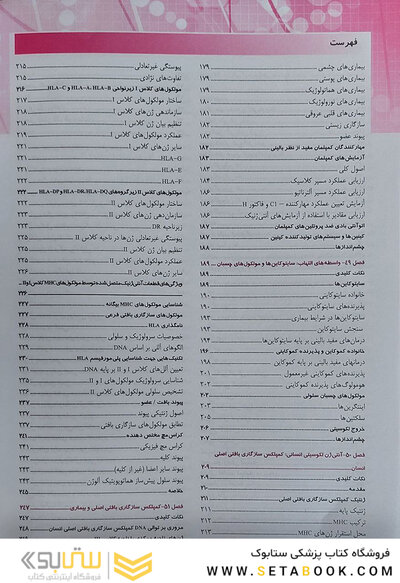 فهرست
بیماری‌های چشمی ۱۷۹
بیماری‌های پوستی ۱۷۹
بیماری‌های هماتولوژیک ۱۷۹
بیماری‌های نورولوژیک ۱۸۰
بیماری‌های قلبی عروقی ۱۸۱
سازگاری زیستی ۱۸۲
پیوند عضو ۱۸۲
مهارکنندگان کمپلمان مفید از نظر بالینی ۱۸۲
آزمایش‌های کمپلمان ۱۸۳
اصول کلی ۱۸۳
ارزیابی عملکرد مسیر کلاسیک ۱۸۴
ارزیابی عملکرد مسیر آلترناتیو ۱۸۶
آزمایش تعیین عملکرد مهارکننده C1 و فاکتور H ۱۸۶
ارزیابی مقادیر با استفاده از آزمایش‌های آنتی‌ژنیک ۱۸۶
اتوآنتی بادی ضد پروتئین های کمپلمان ۱۸۷
کینین‌ها و سیستم‌های تولید کننده کینین ۱۸۷
چشم‌اندازها ۱۸۸
فصل ۴۹- واسطه‌های التهاب: سایتوکاین‌ها و مولکول‌های چسبان ۱۸۹
نکات کلیدی ۱۸۹
سایتوکاین‌ها ۱۸۹
خانواده سایتوکاینی ۱۹۰
پذیرنده‌های سایتوکاینی
سایتوکاین‌ها در شرایط بیماری
سنجش سایتوکاین
درمان‌های مفید بالینی بر پایه سایتوکاین‌ها
خانواده کموکاین و پذیرنده کموکاینی ۱۹۶
درمانهای مفید بالینی بر پایه کموکاین
پذیرنده‌های کموکاینی غیرمعمول
هومولوگ‌های پذیرنده کموکاینی
مولکول‌های چسبان سلولی ۲۰۲
اینتگرین‌ها ۲۰۳
سلکتین‌ها ۲۰۵
خروج لکوسیتی ۲۰۶
چشم‌اندازها ۲۰۷
فصل ۵۰- آنتی ژن لکوسیتی انسانی: کمپلکس سازگاری بافتی اصلی
انسان ۲۰۹
نکات کلیدی ۲۰۹
مقدمه ۲۱۰
ژنتیک کمپلکس سازگاری بافتی اصلی ۲۱۱
ژنتیک پایه ۲۱۱
ترکیب MHC ۲۱۲
محل استقرار ژن‌های MHC ۲۱۳
پیوستگی غیرتعادلی ۲۱۵
تفاوت‌های نژادی ۲۱۵
مولکول‌های کلاس I زیرنواحی HLA-A، HLA-B و HLA-C ۲۱۶
ساختار مولکول‌های کلاس I ۲۱۷
سازماندهی ژن‌های کلاس I ۲۱۸
تنظیم بیان ژن کلاس I ۲۱۹
عملکرد مولکول‌های کلاس I ۲۱۹
سایر ژن‌های کلاس I ۲۲۱
HLA-G ۲۲۱
HLA-E ۲۲۱
HLA-F ۲۲۱
مولکول‌های کلاس II زیر گروه‌های HLA-DR، HLA-DQ و HLA-DP ۲۲۲
ساختار مولکول‌های کلاس II
سازمان‌دهی ژن‌های کلاس II
زیرناحیه DR
پیوستگی غیرتعادلی ژن‌ها در ناحیه کلاس II
تنظیم بیان ژن کلاس II
عملکرد مولکول‌های کلاس II
سایر ژن‌های کلاس II
ویژگی‌های قطعات آنتی ژنیک متصل شده توسط مولکول‌های MHC کلاس I و II
شناسایی مولکول‌های MHC بیگانه
مولکول‌های سازگاری بافتی فرعی
نامگذاری HLA
خصوصیات سرولوژیک و سلولی
الگوهای آللی بر اساس DNA
تکنیک هایی جهت شناسایی پلی مورفیسم HLA ۲۳۰
تعیین آلل‌های کلاس I و II بر پایه DNA
شناسایی سرولوژیک مولکول‌های I و II
تشخیص سلولی مولکول‌های کلاس II
پیوند بافت / عضو ۲۳۷
اصول ژنتیکی پیوند ۲۳۷
تطابق مولکول‌های سازگاری بافتی ۲۳۷
کراس مچ مختص دهنده
کراس مچ فیزیکی
پیوند کلیه ۲۴۳
پیوند سایر اعضا (غیر از کلیه) ۲۴۳
پیوند سلول پیش‌ساز هماتوپویتیک آلوژن ۲۴۳
خلاصه ۲۴۵
فصل ۵۱- کمپلکس سازگاری بافتی اصلی و بیماری ۲۴۷
نکات کلیدی ۲۴۷
مروری بر توالی DNA کمپلکس سازگاری بافتی اصلی انسان ۲۴۸
ستابوک
فروشگاه اینترنتی کتاب
فروشگاه کتاب پزشکی ستابوک
WWW.SETABOOK.COM